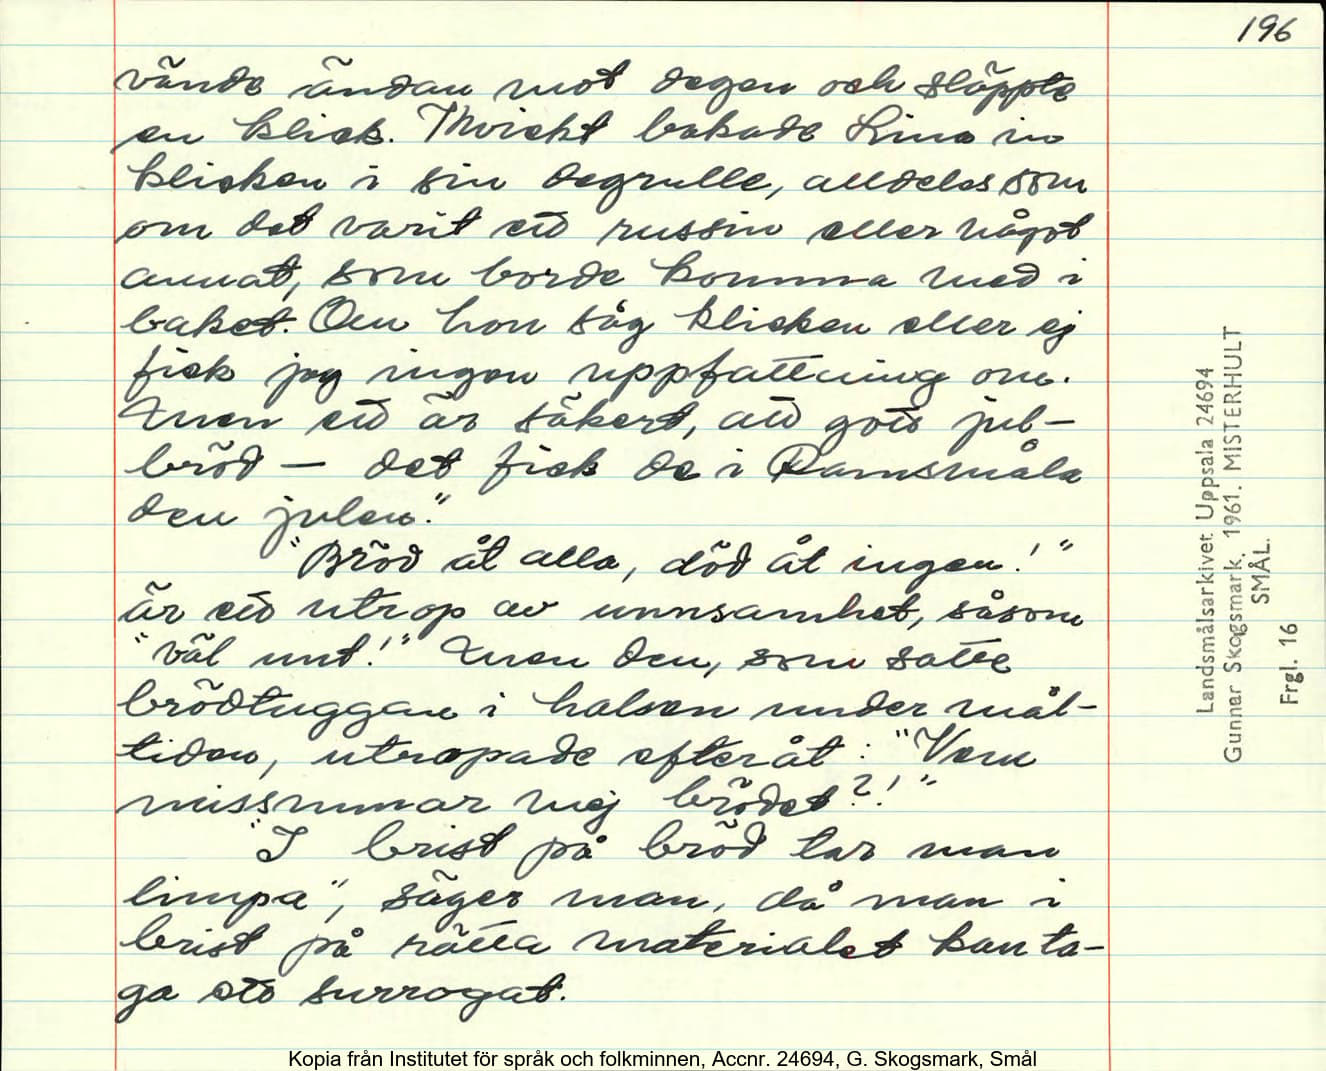 196
vände ändan mot degen och släppte
en klick. Kvickt bakade Lina in
klicken i sin degrulle, alldeles som
om det varit ett russin eller något
annat, som borde komma med i
baket. Om hon såg klicken eller ej
fick jag ingen uppfattning om.
Men ett är säkert, att gott jul-
bröd — det fick de i Ramsmåla
den julen."
"Bröd åt alla, död åt ingen!"
är ett utrop av unnsamhet, såsom
"väl unt!" Men den, som satte
brödtuggan i halsen under mål-
tiden, utropade efteråt: "Vem
missunnar mej brödet?!"
"I brist på bröd tar man
limpa", säger man, då man i
brist på rätta materialet kan ta-
ga ett surrogat.
Landsmålsarkivet Uppsala 24694
Gunnar Skogsmark. 1961. MISTERHULT
SMÅL.
Frgl. 16
Kopia från Institutet för språk och folkminnen, Accnr. 24694, G. Skogsmark, Smål